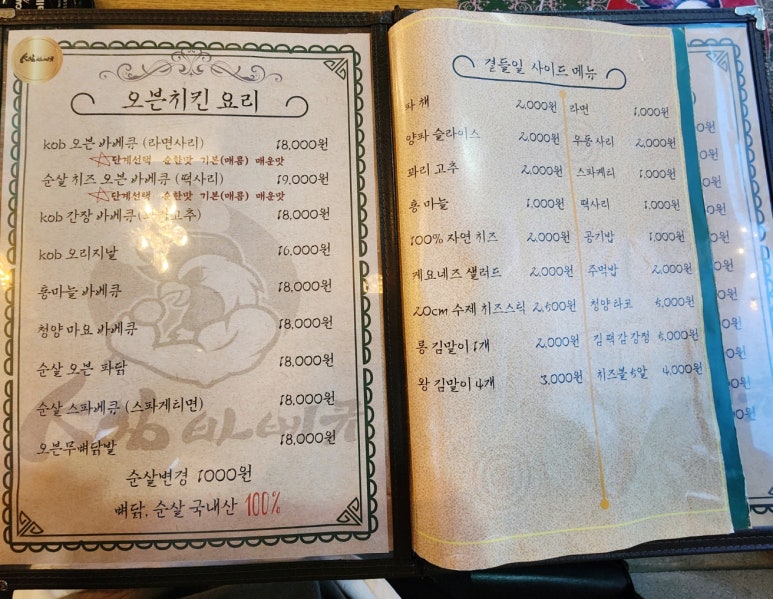 오븐치킨 요리
kob 오븐 바베큐 (라면사리) 18,000원
☆단계선택 순한맛 기본(매콤) 매운맛
순살 치즈 오븐 바베큐 (떡사리) 19,000원
☆단계선택 순한맛 기본(매콤) 매운맛
kob 간장 바베큐 고추) 18,000원
kob 오리지날 16,000원
홍마늘 바베큐 18,000원
청양 마요 바베큐 18,000원
순살 오븐 파닭 18,000원
순살 스파베큐 (스파게티면) 18,000원
오븐무뼈닭발 18,000원
순살변경 1000원
뼈닭, 순살 국내산 100%
kob 바베큐
곁들일 사이드 메뉴
파 채 2,000원 라면 1,000원
양파 슬라이스 2,000원 우동 사리 2,000원
꽈리 고추 2,000원 스파게티 1,000원
홍 마늘 1,000원 떡사리 1,000원
100% 자연 치즈 2,000원 공기밥 1,000원
케요네즈 샐러드 2,000원 주먹밥 2,000원
20cm 수제 치즈스틱 2,500원 청양타코 5,000원
롱 김말이 1개 2,000원 김떡감강정 5,000원
왕 김말이 4개 3,000원 치즈볼 5알 4,000원